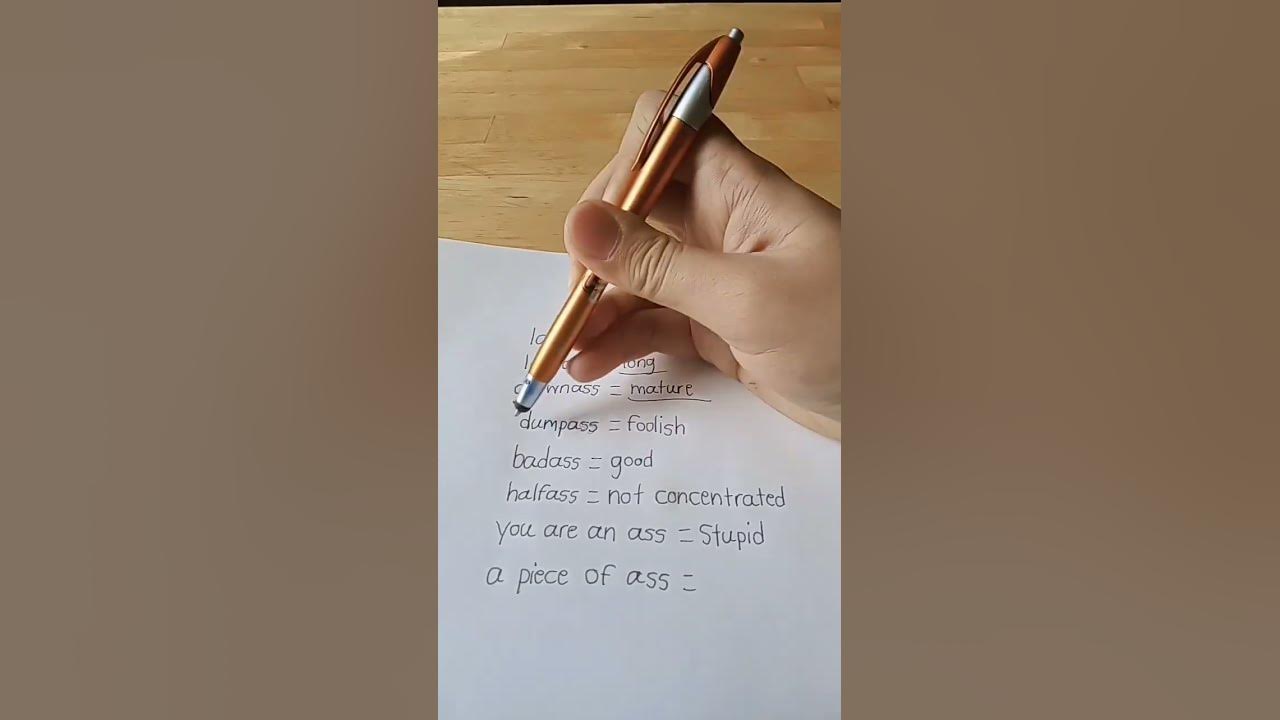 long
= mature
dumpass = foolish
badass = good
halfass = not concentrated
you are an ass = Stupid
a piece of ass =